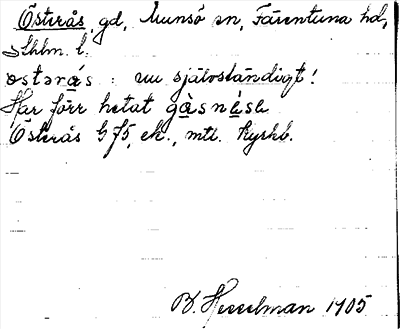 Österås, gd, Munsö sn, Färentuna hd,
Sthlm. l.
östərás : nu självständigt!
Har förr hetat gàsnésə
Österås G 75, ek., mtl. Kyrkb.
B. Hesselman 1905